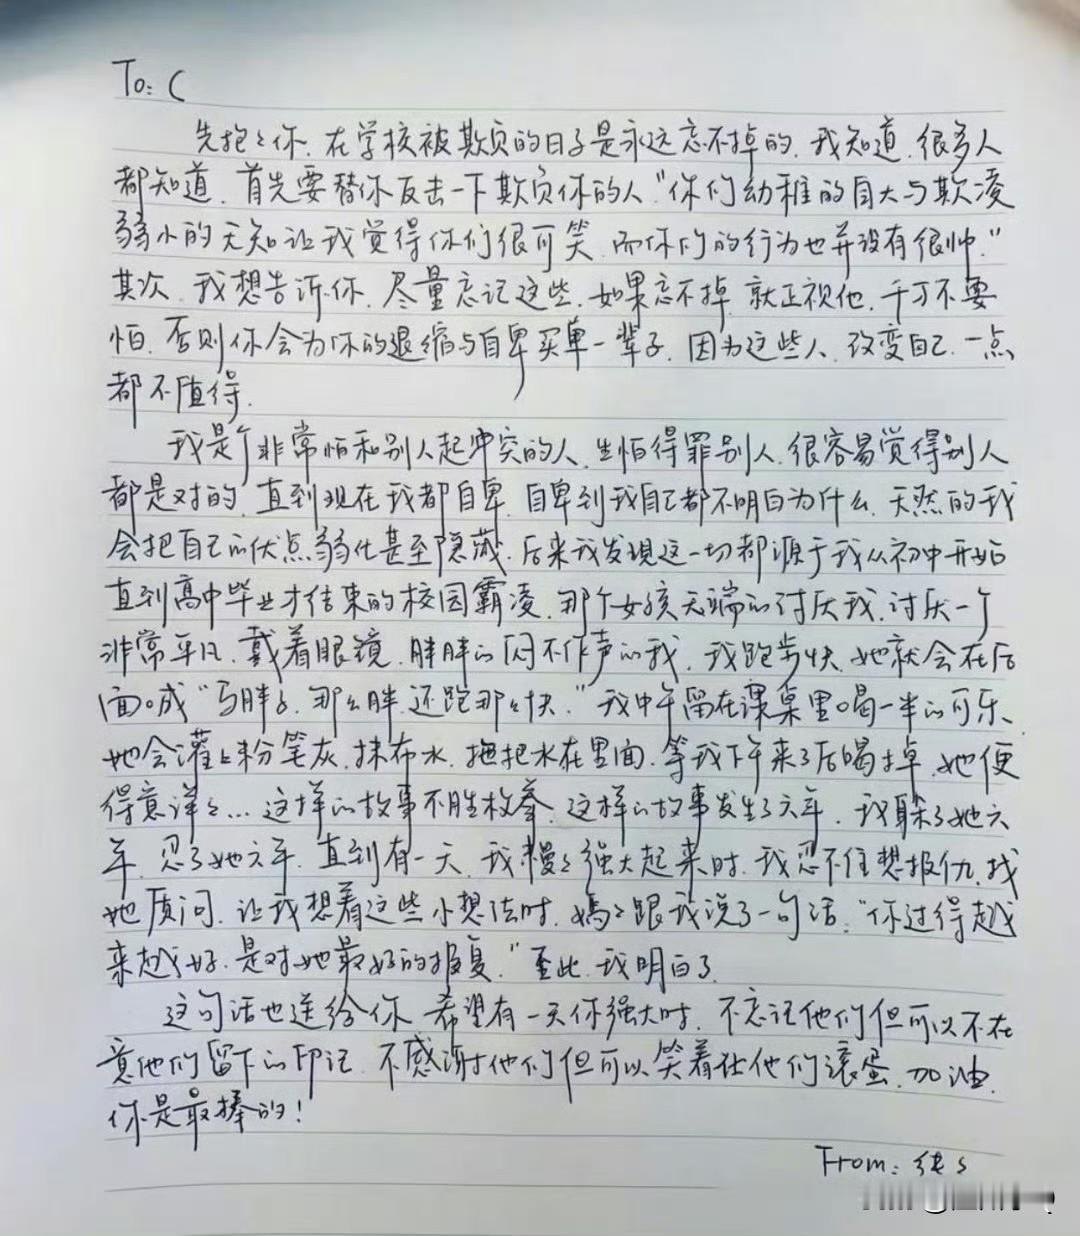 To: C
先抱々你.在学校被欺负的日子是永远忘不掉的.我知道.很多人
都知道.首先要替你反击一下欺负你的人“你们幼稚的自大与欺凌
弱小的无知让我觉得你们很可笑.而你们的行为也并没有很帅.”
其次.我想告诉你.尽量忘记这些.如果忘不掉.就正视他.千万不要
怕.否则你会为你的退缩与自卑买单一辈子.因为这些人.改变自己.一点
都不值得.
我是个非常怕和别人起冲突的人.生怕得罪别人.很容易觉得别人
都是对的.直到现在我都自卑.自卑到我自己都不明白为什么.天然的我
会把自己的优点弱化甚至隐藏.后来我发现这一切都源于我从初中开始
直到高中毕业才结束的校园霸凌.那个女孩无端的讨厌我.讨厌一个
非常平凡.戴着眼镜.胖胖的闷不作声的我.我跑步快.她就会在后
面喊“马胖子.那么胖.还跑那么快.”我中午留在课桌里喝一半的可乐、
她会灌上粉笔灰.抹布水.拖把水在里面.等我下午来了后喝掉.她便
得意洋々...这样的故事不胜枚举.这样的故事发生了六年.我躲了她六
年.忍了她六年.直到有一天.我慢々强大起来时.我忍不住想报仇.找
她质问.让我想着这些小想法时.妈々跟我说了一句话:“你过得越
来越好.是对她最好的报复.”至此.我明白了.
这句话也送给你.希望有一天你强大时.不忘记他们但可以不在
意他们留下的印记.不感谢他们但可以笑着让他们滚蛋.加油.
你是最棒的!
From: